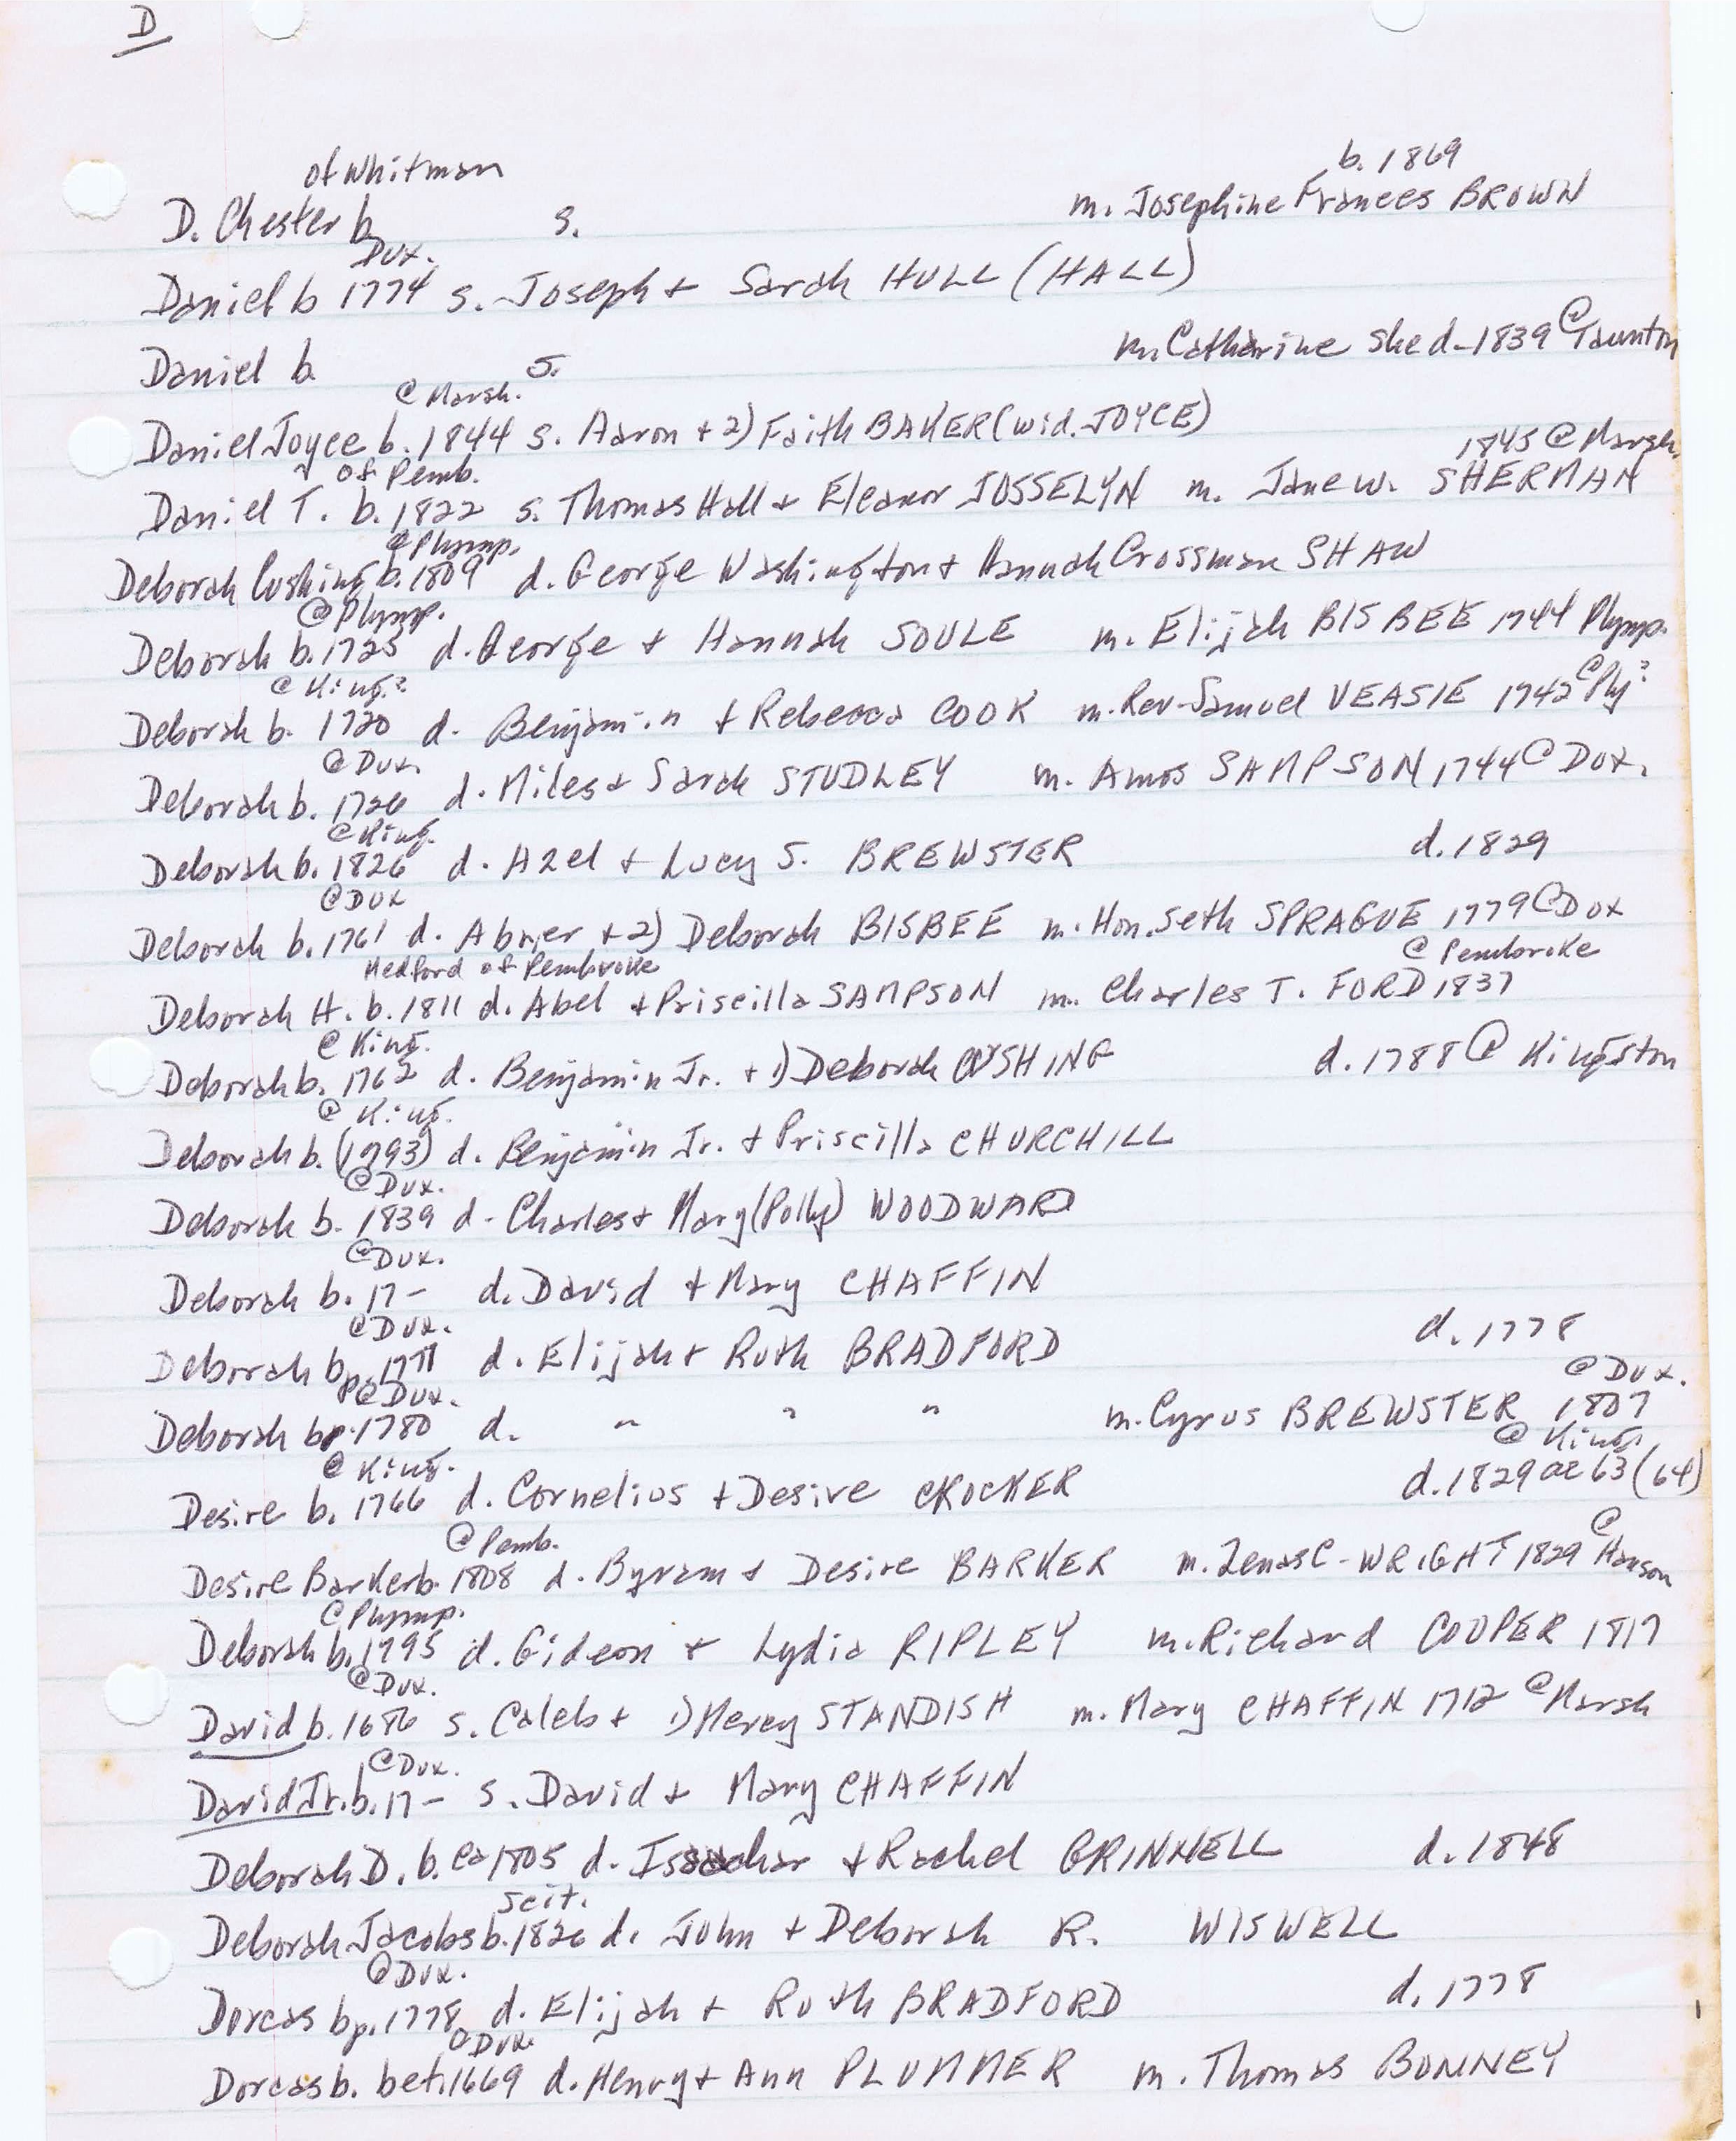 D
of Whitman b. 1869
D. Chester b. s. m. Josephine Frances BROWN
Dux.
Daniel b 1774 s. Joseph + Sarah HULL (HALL)
Daniel b. s. m. Catharine Shed - 1839 @ Taunton
@ Marsh.
Daniel Joyce b. 1844 s. Aaron + 2) Faith BAKER (wid. JOYCE)
of Pemb. 1845 @ Marsh.
Daniel T. b. 1822 s. Thomas Hall + Eleanor JOSSELYN m. Jane W. SHERMAN
@ Plymp.
Deborah Cushing b. 1809 d. George Washington + Hannah Crossman SHAW
@ Plymp.
Deborah b. 1725 d. George + Hannah SOULE m. Elijah BISBEE 1744 Plymp.
@ King.?
Deborah b. 1720 d. Benjamin + Rebecca COOK m. Rev. Samuel VEASIE 1742 @ Ply?
@ Dux.
Deborah b. 1726 d. Miles + Sarah STUDLEY m. Amos SAMPSON, 1744 @ Dux.
@ King.
Deborah b. 1826 d. Azel + Lucy S. BREWSTER d. 1829
@ Dux
Deborah b. 1761 d. Abner + 2) Deborah BISBEE m. Hon. Seth SPRAGUE 1779 @ Dux
Medford of Pembroke @ Pembroke
Deborah H. b. 1811 d. Abel + Priscilla SAMPSON m. Charles T. FORD 1837
@ King.
Deborah b. 1762 d. Benjamin Jr. + 1) Deborah CUSHING d. 1788 @ Kingston
@ King.
Deborah b. (1793) d. Benjamin Jr. + Priscilla CHURCHILL
@ Dux.
Deborah b. 1839 d. Charles + Mary (Polly) WOODWARD
@ Dux.
Deborah b. 17- d. David + Mary CHAFFIN
@ Dux.
Deborah bp. 1777 d. Elijah + Ruth BRADFORD d. 1778
@ Dux. @ Dux.
Deborah bp. 1780 d. " " " m. Cyrus BREWSTER 1807
@ King. @ King.
Desire b. 1766 d. Cornelius + Desire CROCKER d. 1829 ae 63 (64)
@ Pemb.
Desire Barker b. 1808 d. Byram + Desire BARKER m. Zenas C. WRIGHT 1829 @ Hanson
@ Plymp.
Deborah b. 1795 d. Gideon + Lydia RIPLEY m. Richard COOPER 1817
@ Dux.
David b. 1686 s. Caleb + 1) Mercy STANDISH m. Mary CHAFFIN 1712 @ Marsh
@ Dux.
David Jr. b. 17- s. David + Mary CHAFFIN
Deborah D. b. ca 1805 d. Issachar + Rachel GRINNELL d. 1848
Scit.
Deborah Jacobs b. 1826 d. John + Deborah R. WISWELL
@ Dux.
Dorcas bp. 1778 d. Elijah + Ruth BRADFORD d. 1778
@ Dux.
Dorcas b. bet. 1669 d. Henry + Ann PLUMMER m. Thomas BONNEY